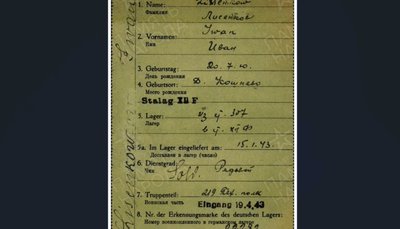 1. Name:
Фамилия Лисенков
2. Vorname: Iwan
Имя Иван
3. Geburtstag: 20.7.10.
День рождения
4. Geburtsort: Д. Кошнево
Место рождения
Stalag XII F
5. Lager: VI 307
Лагер XII Ф
5a. Im Lager eingeliefert am: 15.1.43.
Доставлен в лагер (число)
6. Dienstgrad: Sold. Рядовой
Чин
7. Truppenteil: 219 полк
Воинская часть Eingang 19.4.43
8. Nr. der Erkennungsmarke des deutschen Lagers:
Номер военнопленного в германском
Lisenkow Iwan